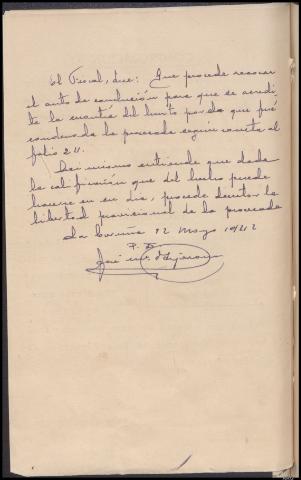 El Fiscal, dice: Que procede revocar
el auto de conclusión para que se acredi-
te la cuantía del hurto por la que fué
condenada la procesada según consta al
folio 24.
Así mismo entiende que dada
la calificación que del hecho puede
hacerse en su día, procede decretar la
libertad provisional de la procesada
La Coruña 12 Mayo 1942
P. D.
José